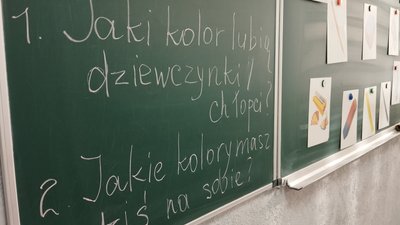 1. Jaki kolor lubią
dziewczynki /
chłopci?
2. Jakie kolory masz
dziś na sobie?